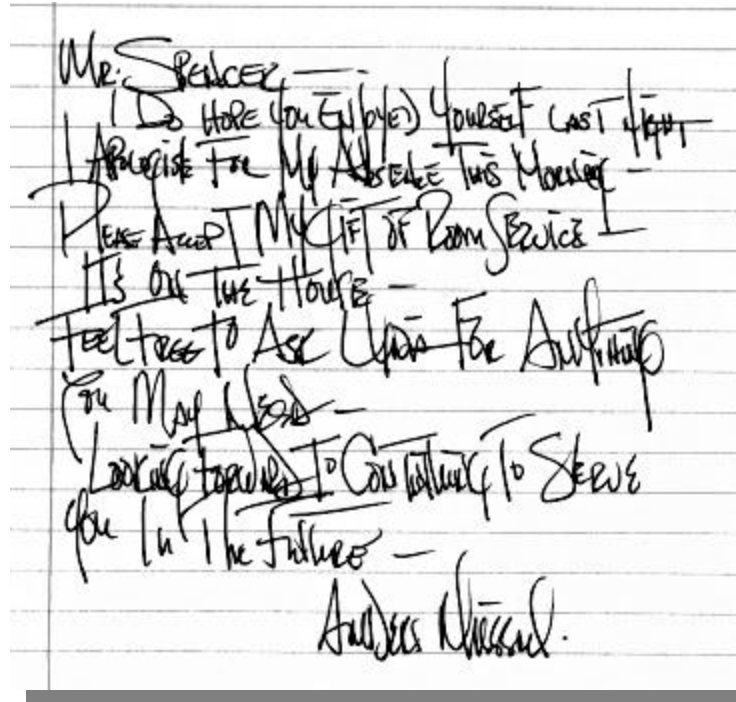 Mr. Spencer —
I Do Hope You Enjoyed Yourself Last Night
I Apologise For My Absence This Morning —
Please Accept My Gift of Room Service —
It's On The House —
Feel Free To Ask For Anything
You May Need —
Looking Forward To Continuing To Serve
You In The Future —
Anders